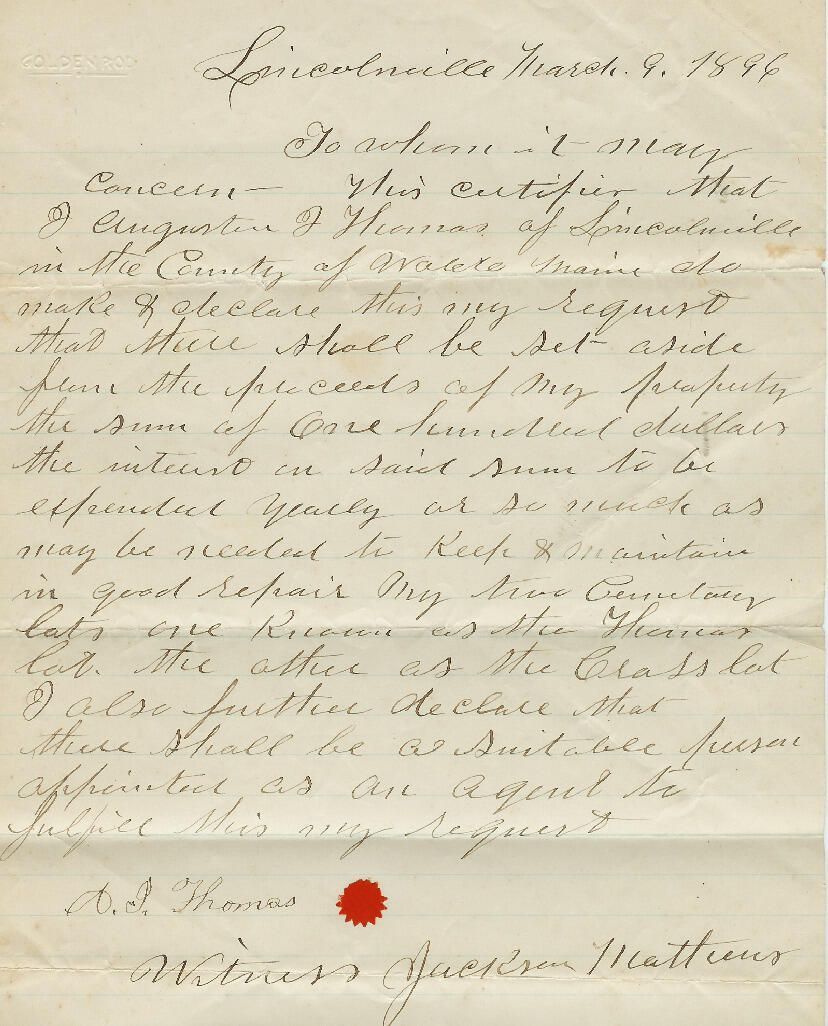 GOLDENROD
Lincolnville March. 9. 1896
To whom it may
concern — This certifies that
I Augustus J Thomas of Lincolnville
in the County of Waldo Maine do
make & declare this my request
that there shall be set aside
from the proceeds of my property
the sum of One hundred dollars
the interest on said sum to be
expended yearly or so much as
may be needed to Keep & maintain
in good repair My two Cemetary
lots one Known as the Thomas
lot. the other as the Cross lot
I also further declare that
there shall be a suitable person
appointed as an agent to
fulfill this my request
A. J. Thomas
Witness Jackson Mathews